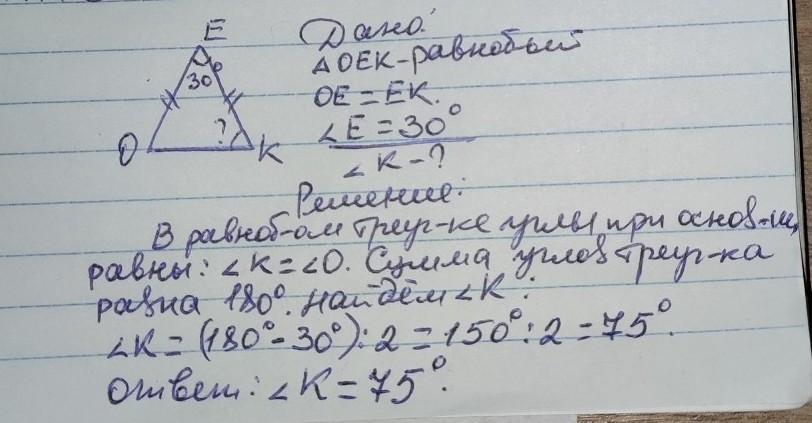 E
30°
?
O
K
Дано:
△OEK-равнобый
OE=EK.
∠E=30°
∠K-?
Решение:
В равноб-ом треуг-ке углы при основ-ии,
равны: ∠K=∠O. Сумма углов треуг-ка
равна 180°. Найдём ∠K:
∠K=(180°-30°):2=150°:2=75°.
Ответ: ∠K=75°.